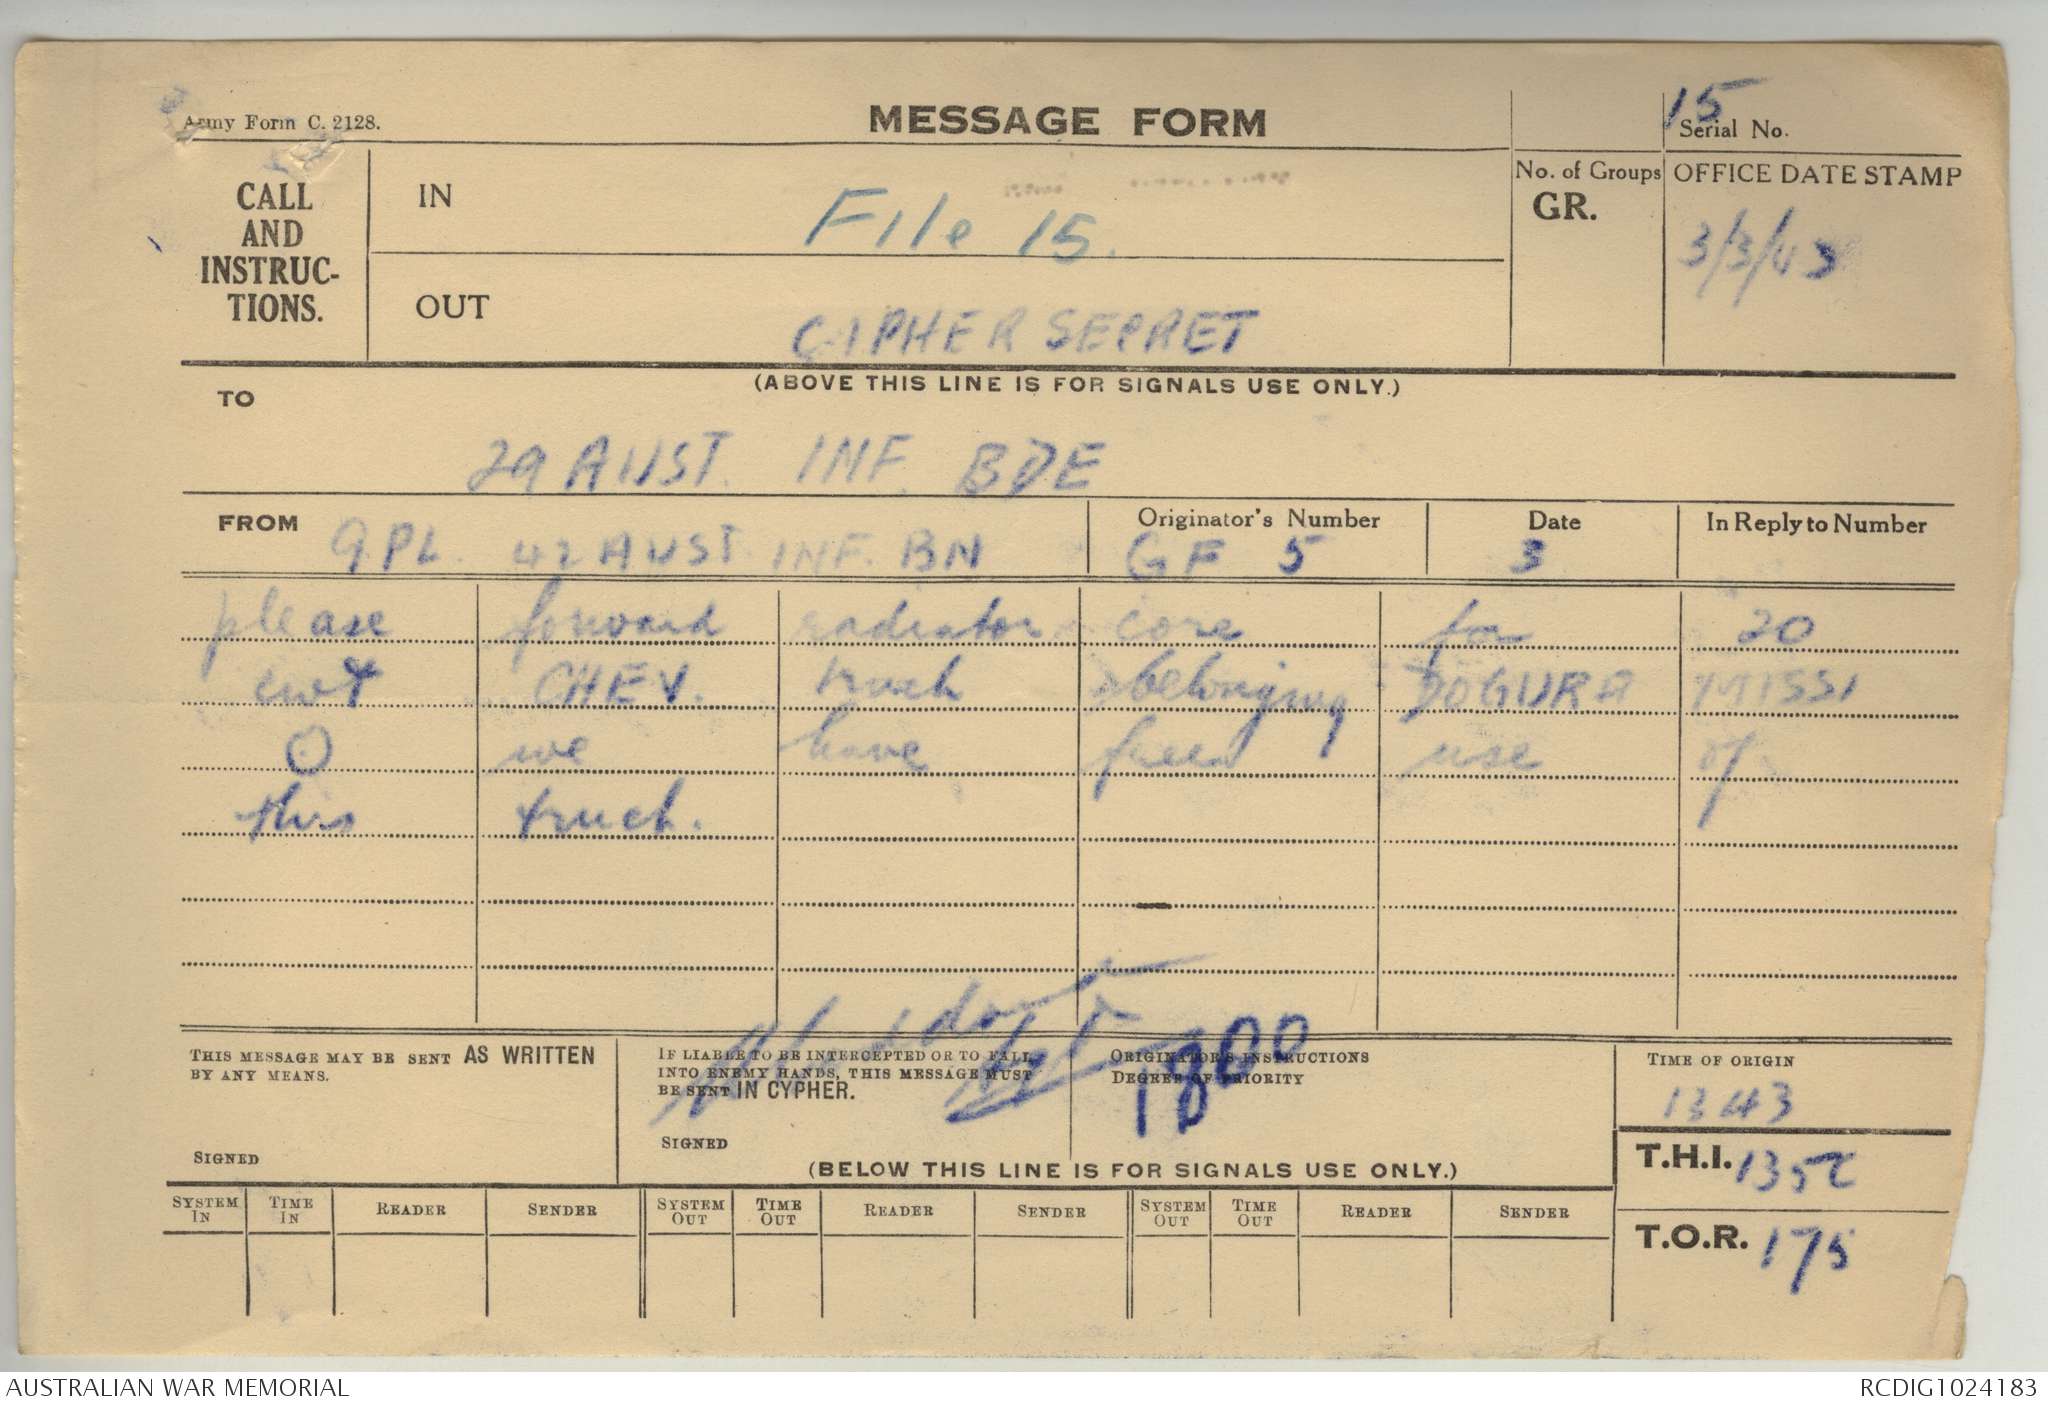 Army Form C. 2128.
MESSAGE FORM
15
Serial No.
CALL AND INSTRUC-TIONS.
IN
File 15.
No. of Groups
GR.
OFFICE DATE STAMP
3/3/43
OUT
CIPHER SECRET
(ABOVE THIS LINE IS FOR SIGNALS USE ONLY.)
TO
29 AUST. INF. BDE
FROM
9.PL. 42 AUST. INF. BN
Originator's Number
GF 5
Date
3
In Reply to Number
please forward radiator core for 20
cwt CHEV. truck belonging DOGURA MISSI
O we have free use of
this truck.
THIS MESSAGE MAY BE SENT AS WRITTEN
BY ANY MEANS.
SIGNED
IF LIABLE TO BE INTERCEPTED OR TO FALL
INTO ENEMY HANDS, THIS MESSAGE MUST
BE SENT IN CYPHER.
SIGNED
ORIGINATOR'S INSTRUCTIONS
DEGREE OF PRIORITY
1800
TIME OF ORIGIN
1343
T.H.I.
T.O.R. 175
(BELOW THIS LINE IS FOR SIGNALS USE ONLY.)
SYSTEM IN TIME IN READER SENDER SYSTEM OUT TIME OUT READER SENDER SYSTEM OUT TIME OUT READER SENDER
AUSTRALIAN WAR MEMORIAL
RCDIG1024183